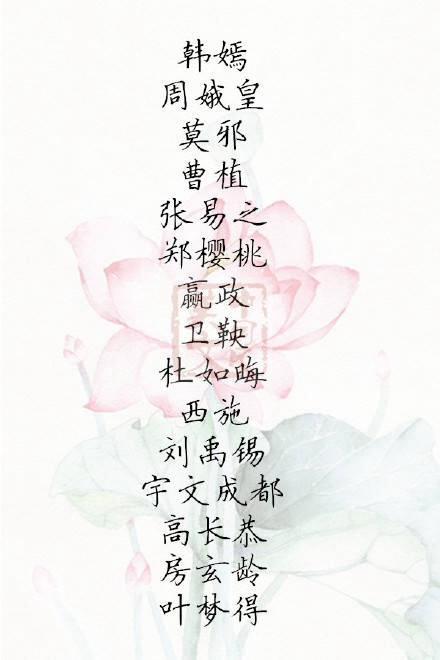 韩嫣
周娥皇
莫邪
曹植
张易之
郑樱桃
嬴政
卫鞅
杜如晦
西施
刘禹锡
宇文成都
高长恭
房玄龄
叶梦得